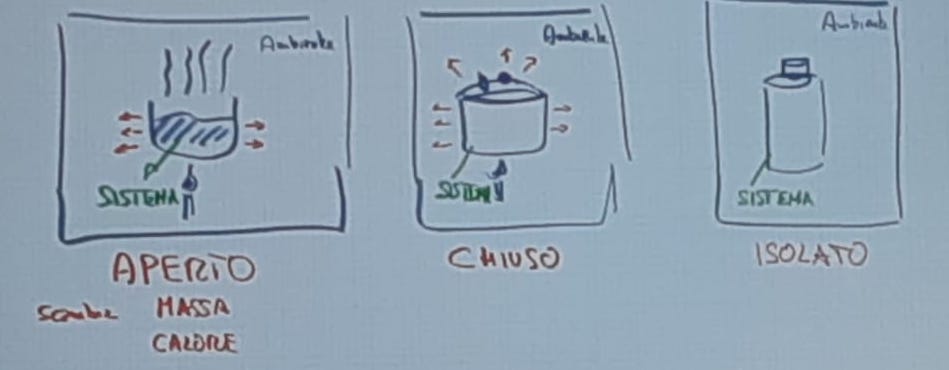 Ambiente
SISTEMA
APERTO
scambia MASSA
CALORE
Ambiente
SISTEMA
CHIUSO
Ambiente
SISTEMA
ISOLATO